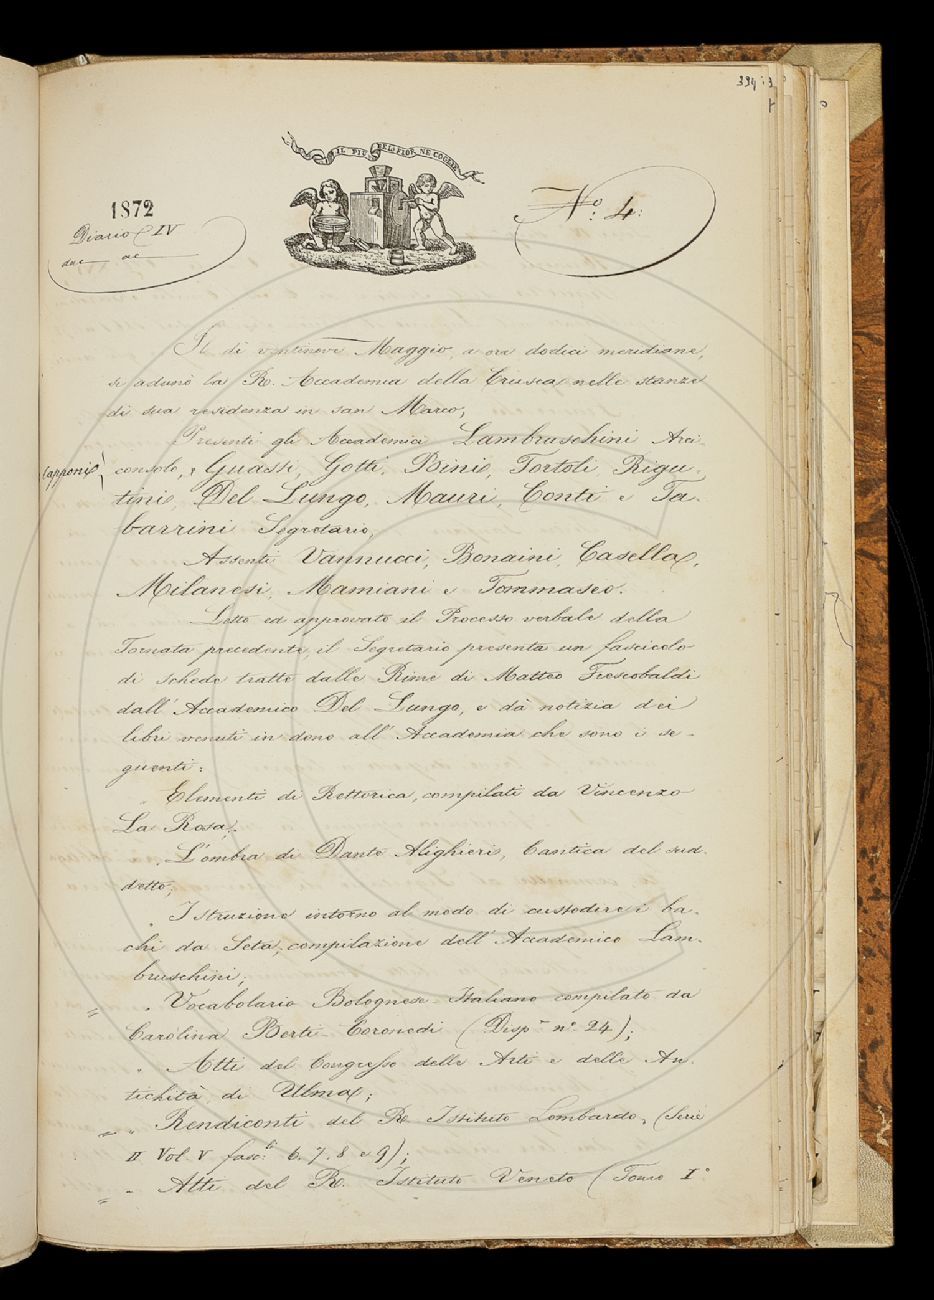 394:3
IL PIÙ BEL FIOR NE COGLIE
1872
Diario C IV
N.º 4:
Il dì ventinove Maggio, a ora dodici meridiane,
si adunò la R. Accademia della Crusca nelle stanze
di sua residenza in San Marco,
Presenti gli Accademici Lambruschini Arci-
consolo, Guasti, Gotti, Bini, Tortoli, Rigu-
tini, Del Lungo, Mauri, Conti e Ta-
barrini Segretario,
Assenti Vannucci, Bonaini, Casella,
Milanesi, Mamiani e Tommaseo.
Letto ed approvato il Processo verbale della
Tornata precedente, il Segretario presenta un fascicolo
di schede tratte dalle Rime di Matteo Frescobaldi
dall'Accademico Del Lungo, e dà notizia dei
libri venuti in dono all'Accademia che sono i se-
guenti:
Elementi di Rettorica, compilati da Vincenzo
La Rosa;
L'ombra di Dante Alighieri, Cantica del sud-
detto;
Istruzione intorno al modo di custodire i ba-
chi da Seta, compilazione dell'Accademico Lam-
bruschini;
" Vocabolario Bolognese Italiano compilato da
Carolina Berti Coronedi (Disp.ª nº 24);
Atti del Congresso delle Arti e delle An-
tichità di Ulma;
" Rendiconti del R. Istituto Lombardo, (Serie
II Vol. V fasc.li 6. 7. 8 e 9);
" Atti del R. Istituto Veneto (Tomo Iº